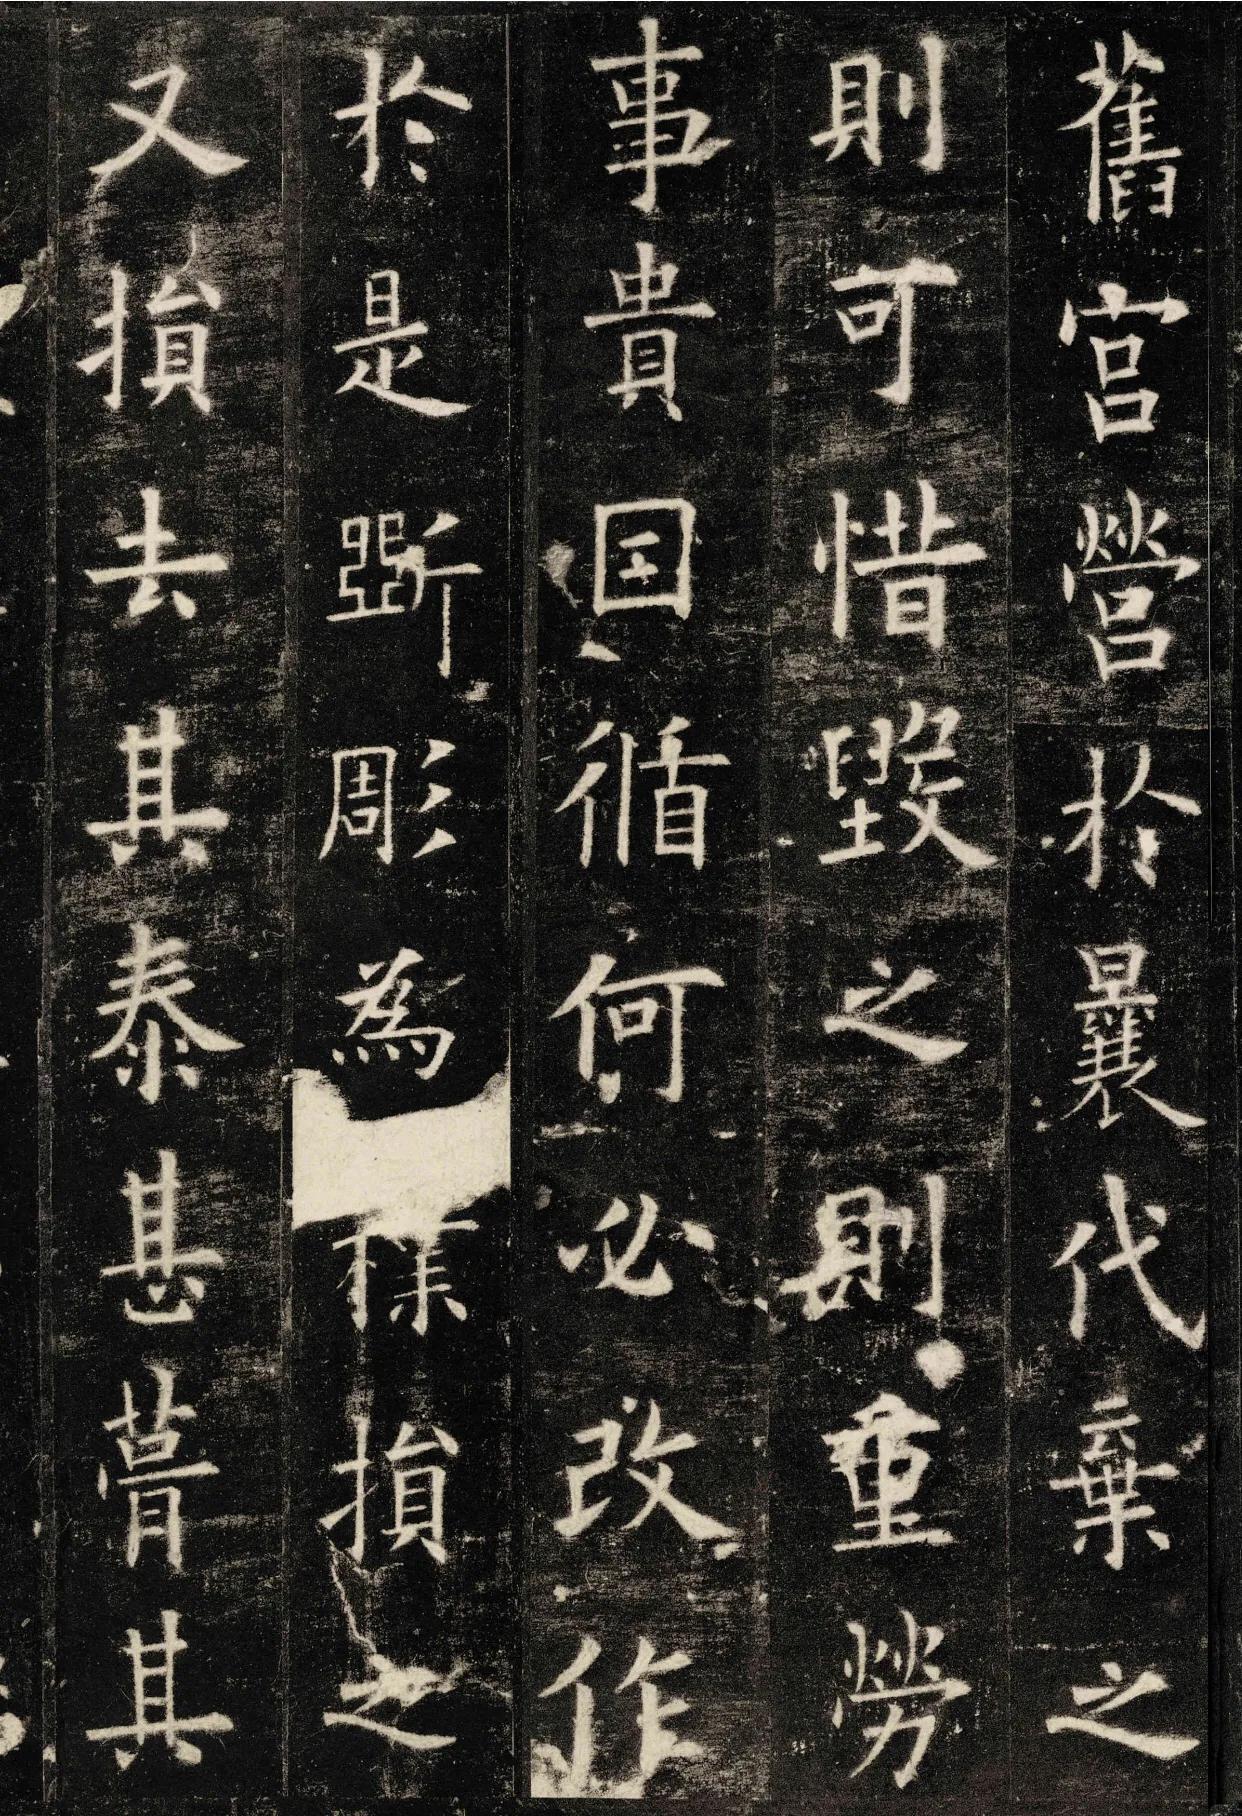 舊宮營於曩代棄之
則可惜毀之則重勞
事貴因循何必改作
於是斲彫為樸損之
又損去其泰甚葺其